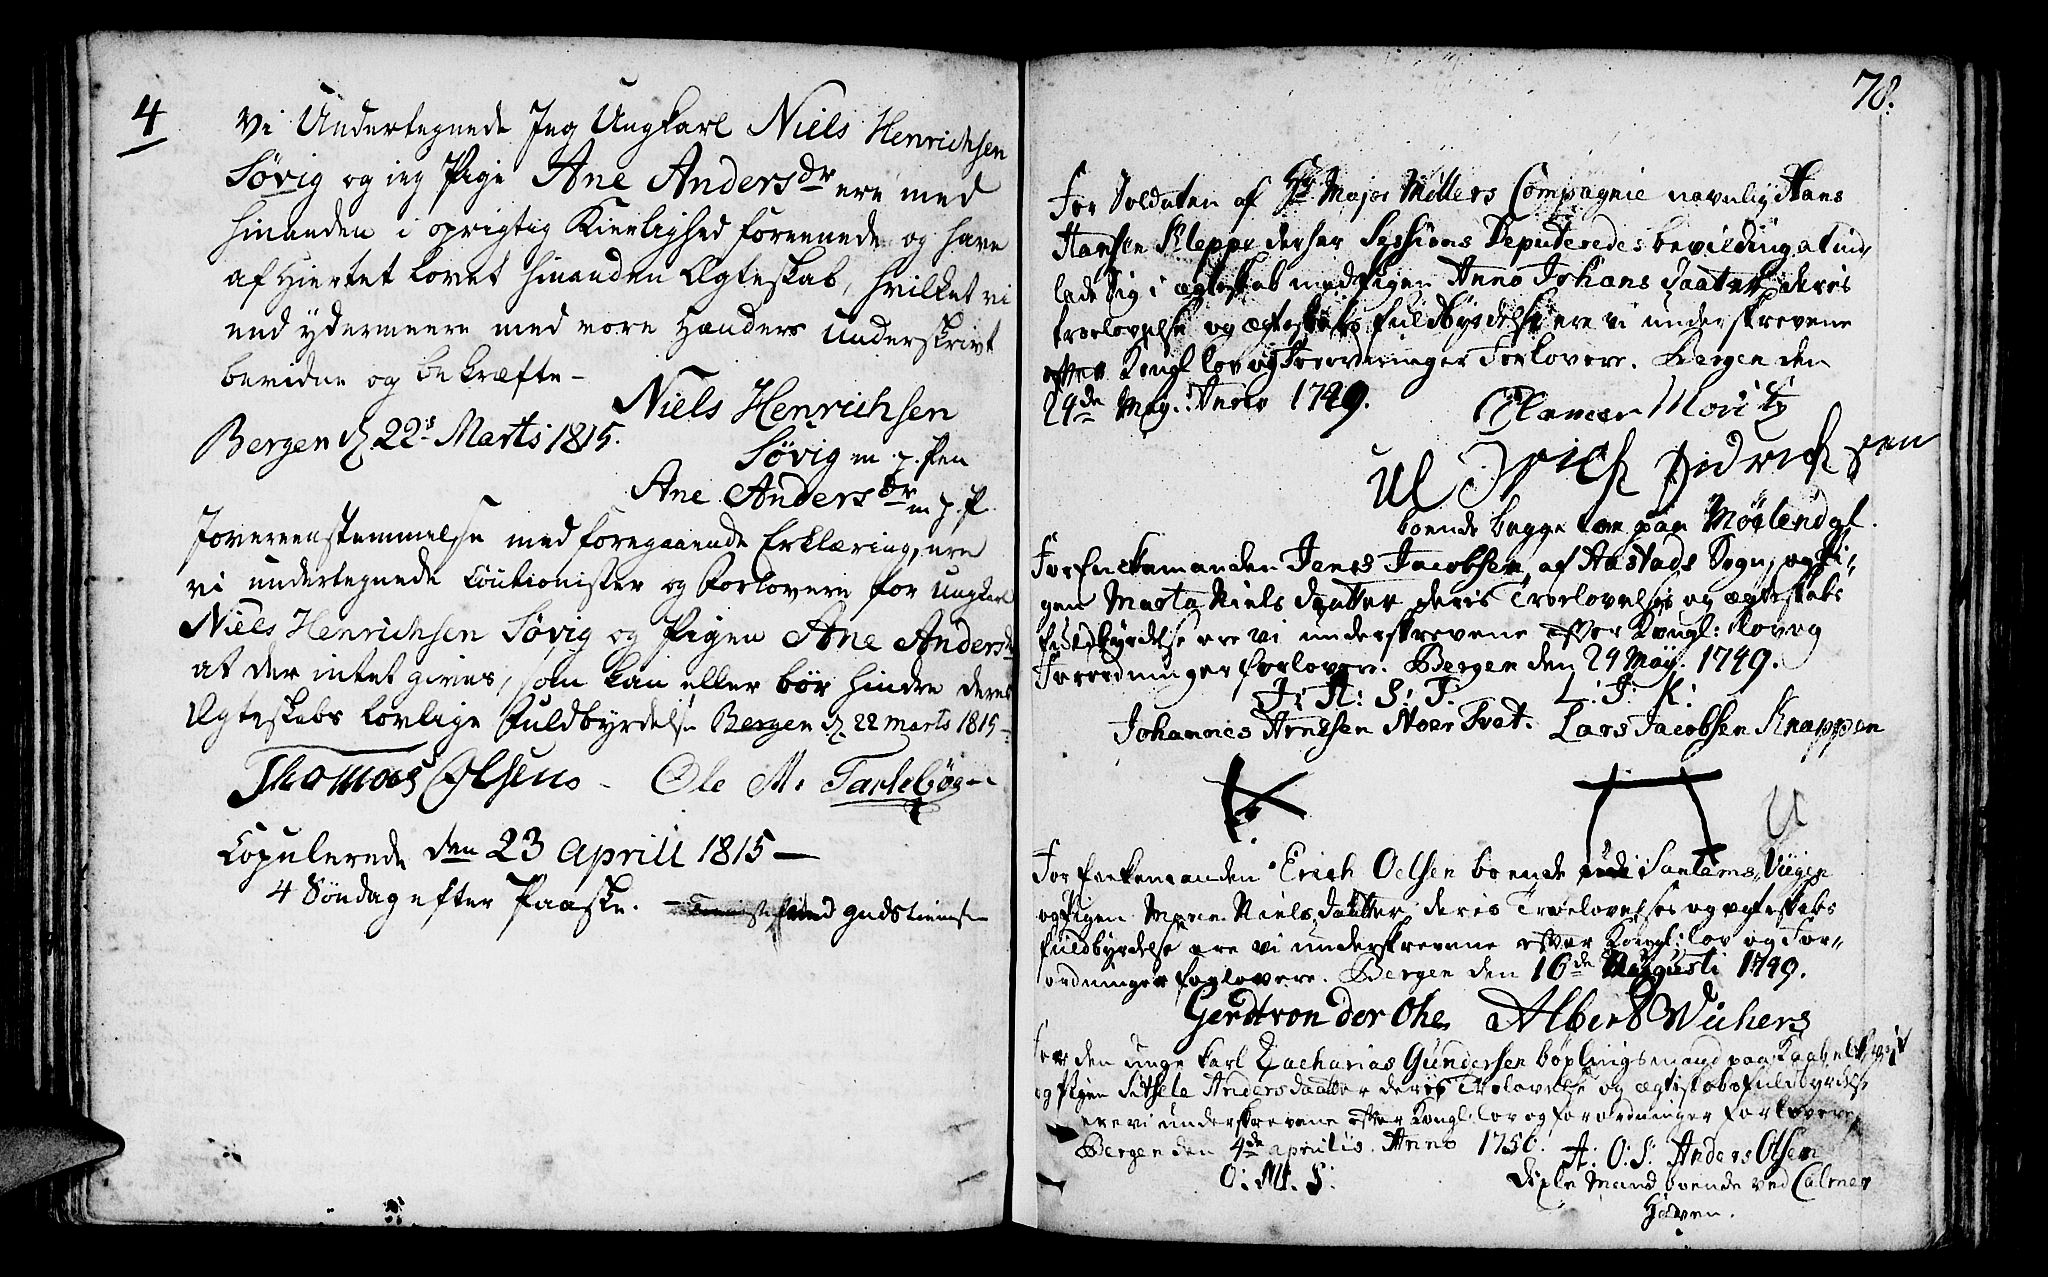 4
Vi Undertegnede Jeg Ungkarl Niels Henrichsen
Søvig og jeg Pige Ane Andersdr ere med
hinanden i oprigtig Kierlighed foreenede og have
af Hiertet lovet hinanden Ægteskab, hvilket vi
end ydermeere med vore Hænders Underskrivt
bevidne og bekræfte -
Niels Henrichsen
Bergen d. 22 Marts 1815.
Søvig m. p. Pen
Ane Andersdr m. p. P.
I overeenstemmelse med foregaaende Erklæring, ere
vi undertegnede Coutionister og Forlovere for Ungkarl
Niels Henrichsen Søvig og Pigen Ane Andersdr
at der intet gives, som kan eller bør hindre deres
Ægteskabs lovlige Fuldbyrdelse Bergen d. 22 Marts 1815 -
Thomas Olsens - Ole M.
Copulerede den 23 April 1815 -
4 Søndag efter Paaske. - med Gudstienes
78.
For Soldaten af Hr Major Möllers Compagnie navnlig Hans
Hansen Kleppe der har Sessions Deputeredes bevilding at ind-
lade sig i ægteskab med Pigen Anna Johans Daatter deres
troelovelse og ægteskabs fuldbyrdelse ere vi underskrevene
efter Kongl lov og Forordninger Forlovere. Bergen den
24de Maÿ. Anno 1749.
boende begge to paa Møglendal.
For Enckemanden Jens Jacobsen, af Aastads Sogn, og Pi-
gen Marta Niels daatter deris Troelovelse og ægteskabs
fuldbyrdelse ere vi underskrevene efter Kongl: lov og
Forordninger forlovere. Bergen den 24 Maÿ. 1749.
J: A: S: T. L: J: K:
Johannes Arnesen Noer Tvet. Lars Jacobsen Knappen
For Enkemanden Erich Oelsen boende
og Pigen Maren Niels daatter deris Troelovelse og ægteskabs
fuldbyrdelse ere vi underskrevene efter Kongl: lov og For-
ordninger forlovere. Bergen den 16de Augusti 1749.
Gerdt von der Ohe Albert Wichers
For den unge Karl Zacharias Gundersen bøplingsmand paa
og Pigen Sitsele Andersdaatter deris Trolovelse og ægteskabs fuldbyrdelse
ere vi underskrevene efter Kongl: lov og forordninger forlovere,
Bergen den 4de aprilis. Anno 1750. A: O: S: Anders Olsen
O: M: S: boende ved Calmer
Haven.